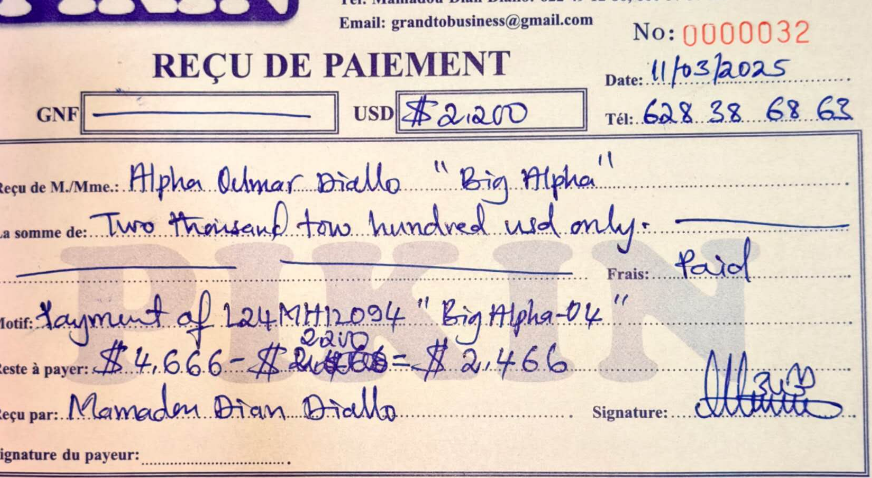 PIKIN
Email: grandtobusiness@gmail.com
No: 0000032
REÇU DE PAIEMENT
Date: 11/03/2025
GNF
USD $2,200
Tél: 628 38 68 63
Reçu de M./Mme.: Alpha Oumar Diallo "Big Alpha"
La somme de: Two thousand tow hundred usd only.
PIKIN
Frais: Paid
Motif: Payment of L24MH12094 "Big Alpha-04"
2200
Reste à payer: $4,666 - $ = $2,466
Reçu par: Mamadou Dian Diallo
Signature:
Signature du payeur: